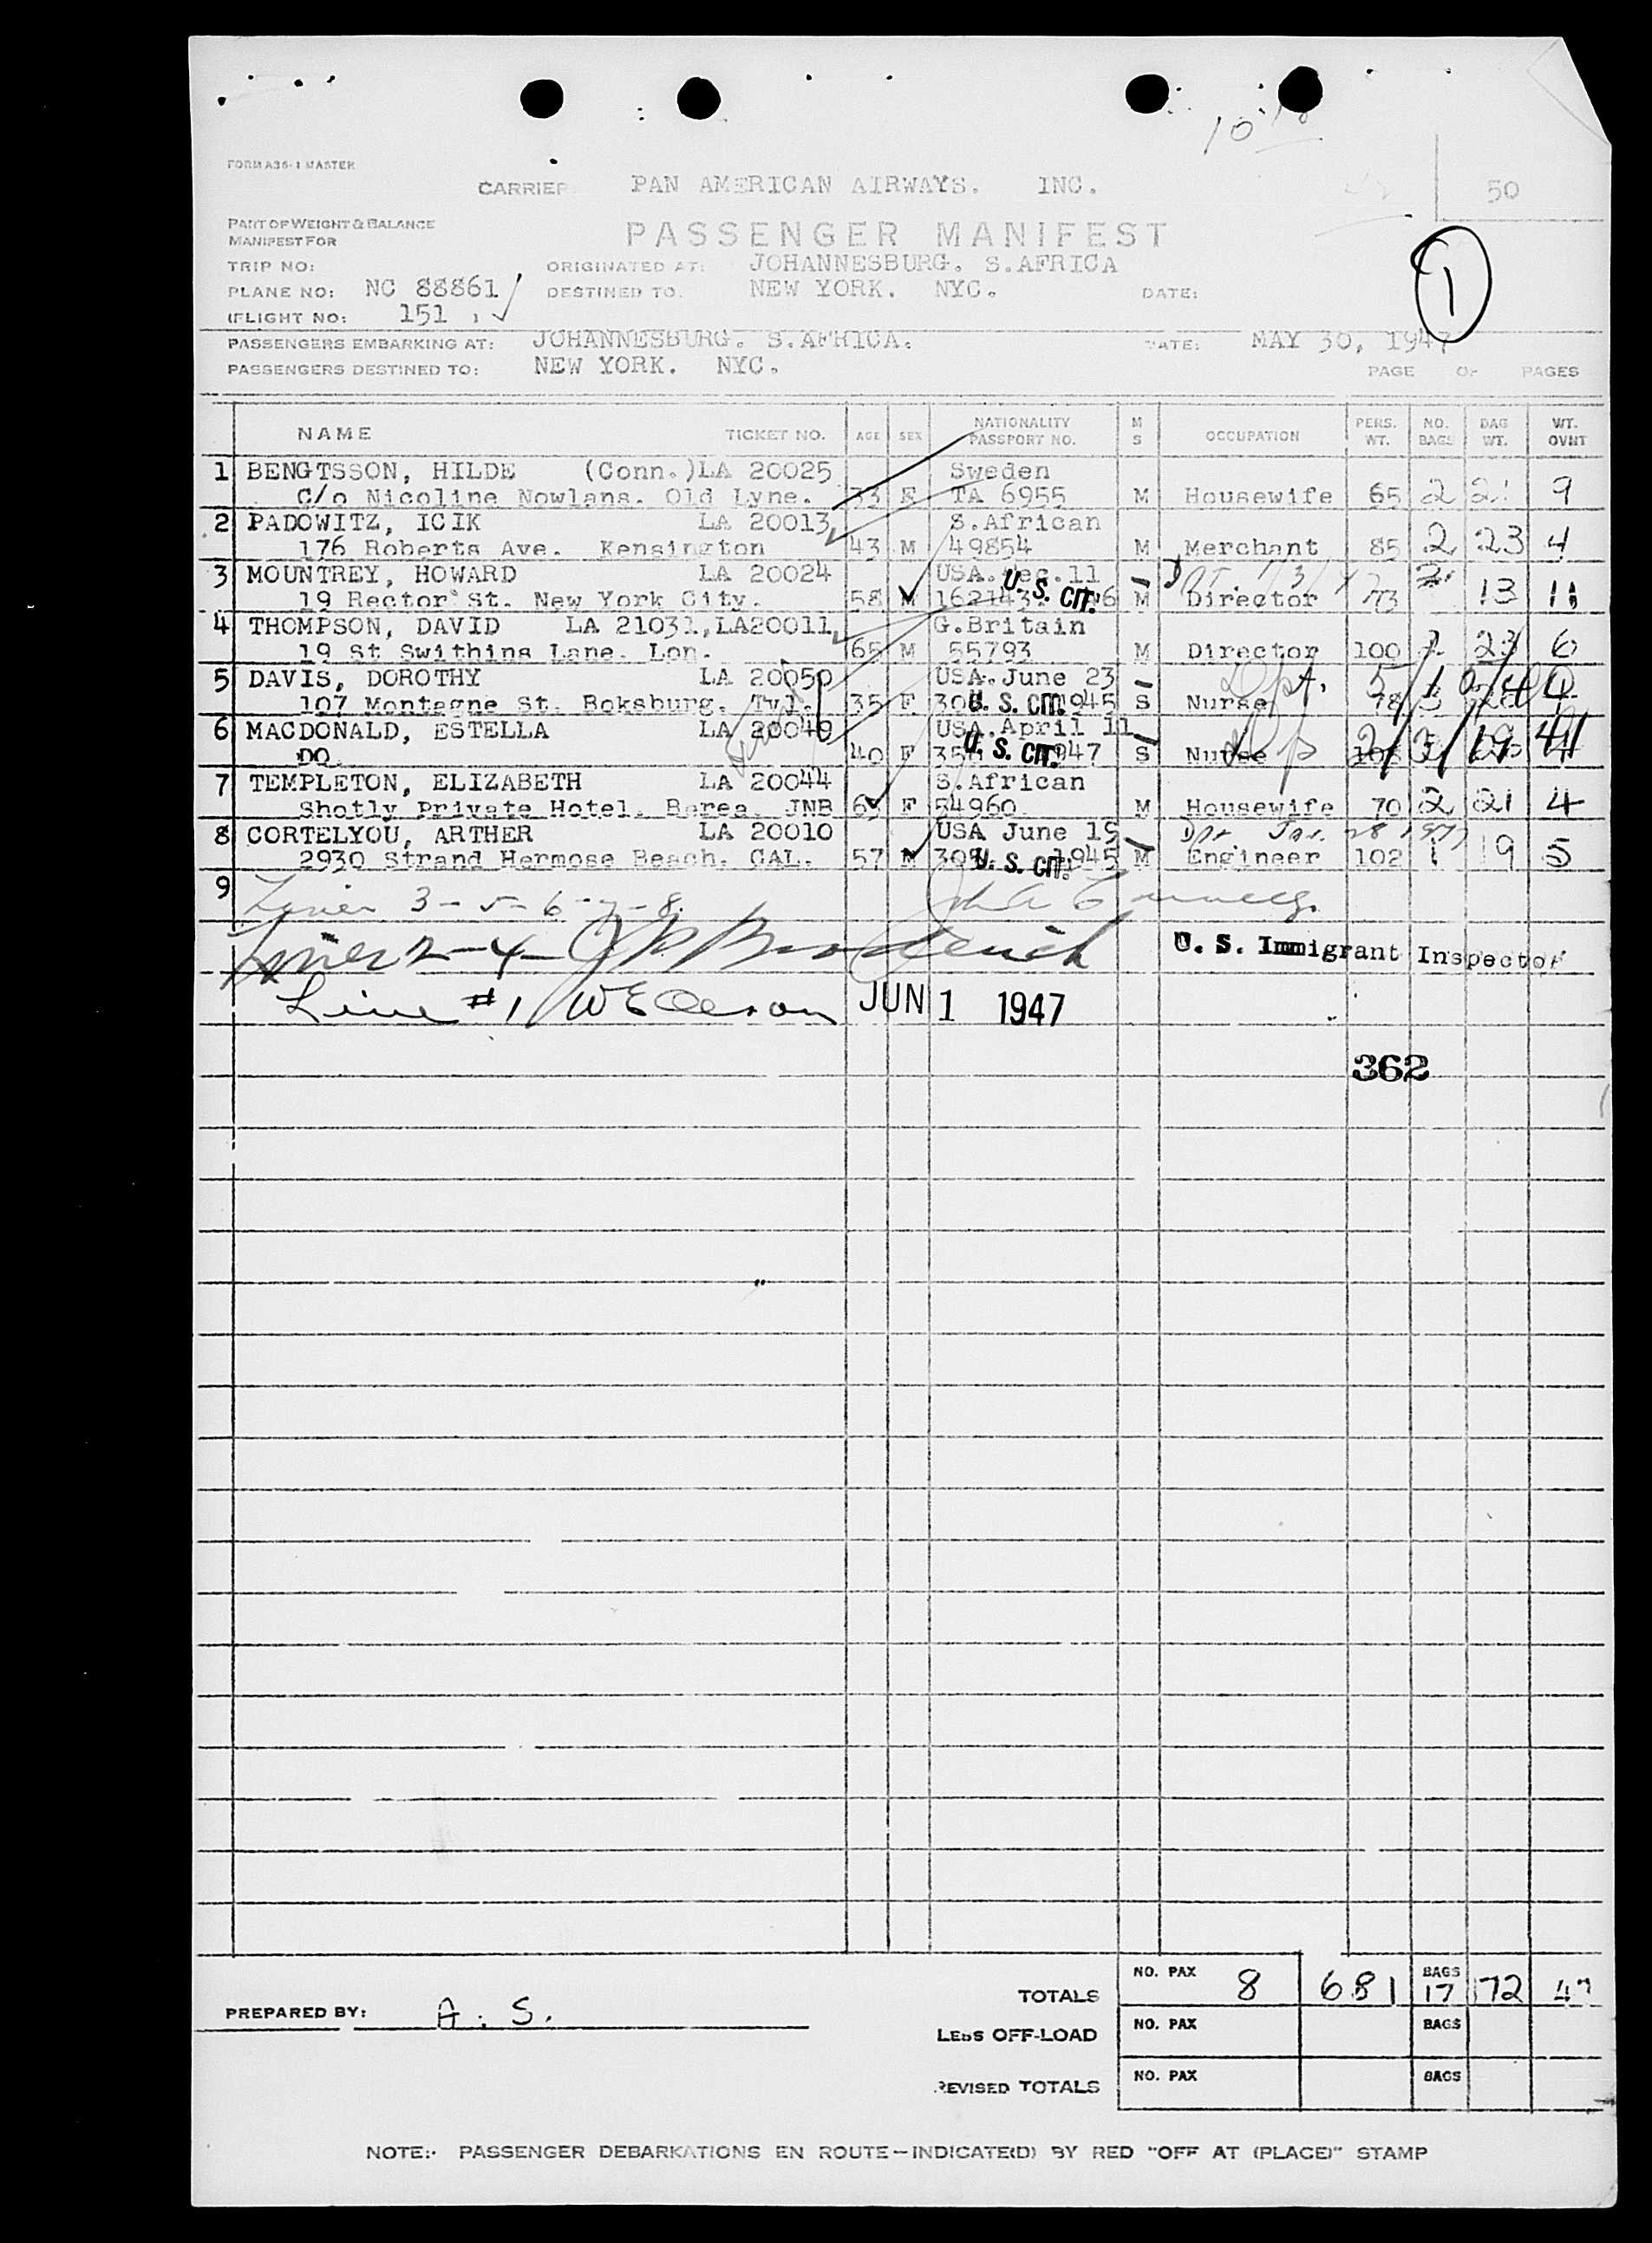 10
FORM A36-1 MASTER
CARRIER PAN AMERICAN AIRWAYS. INC.
50
PART OF WEIGHT & BALANCE
MANIFEST FOR
PASSENGER MANIFEST
TRIP NO: ORIGINATED AT: JOHANNESBURG. S.AFRICA
PLANE NO: NC 88861 DESTINED TO. NEW YORK. NYC. DATE:
1
(FLIGHT NO: 151
PASSENGERS EMBARKING AT: JOHANNESBURG. S.AFRICA. DATE: MAY 30, 1947
PASSENGERS DESTINED TO: NEW YORK. NYC. PAGE OF PAGES
NAME TICKET NO. AGE SEX NATIONALITY PASSPORT NO. M S OCCUPATION PERS. WT. NO. BAGS BAG WT. WT. OVNT
1 BENGTSSON, HILDE (Conn.)LA 20025 Sweden
C/o Nicoline Nowlans. Old Lyne. 33 F TA 6955 M Housewife 65 2 21 9
2 PADOWITZ, ICIK LA 20013 S.African
176 Roberts Ave. Kensington 43 M 49854 M Merchant 85 2 23 4
3 MOUNTREY, HOWARD LA 20024 USA. Dec.11
19 Rector St. New York City. 58 M U. S. CIT. M Director 73 13 11
4 THOMPSON, DAVID LA 21031,LA20011 G.Britain
19 St Swithins Lane. Lon. 65 M 55793 M Director 100 23 6
5 DAVIS, DOROTHY LA 20050 USA. June 23
107 Montagne St. Boksburg. Tvl. 35 F U. S. CIT. 1945 S Nurse 78 3 4
6 MACDONALD, ESTELLA LA 20049 USA. April 11
DO 40 F U. S. CIT. 47 S Nurse
7 TEMPLETON, ELIZABETH LA 20044 S.African
Shotly Private Hotel. Berea. JNB 69 F 54960 M Housewife 70 2 21 4
8 CORTELYOU, ARTHER LA 20010 USA June 19
2930 Strand Hermose Beach. CAL. 57 M U. S. CIT. 1945 M Engineer 102 1 19 5
9 Lines 3-5-6-7-8.
Lines 2-4- U. S. Immigrant Inspector
Line #1 JUN 1 1947
362
TOTALS NO. PAX 8 681 BAGS 17 172 47
PREPARED BY: A. S.
LESS OFF-LOAD NO. PAX BAGS
REVISED TOTALS NO. PAX BAGS
NOTE: PASSENGER DEBARKATIONS EN ROUTE—INDICATE(D) BY RED "OFF AT (PLACE)" STAMP